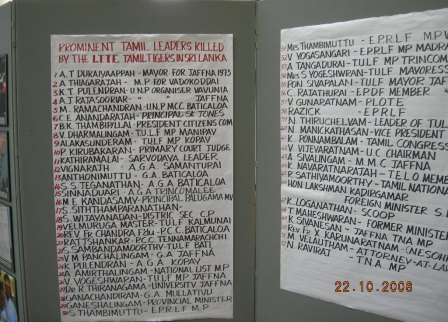 PROMINENT TAMIL LEADERS KILLED
BY THE LTTE TAMIL TIGERS IN SRI LANKA
A.T DURAIYAPPAH - MAYOR FOR JAFFNA 1975
A THIAGARAJAH - M.P FOR VADOKODDAI
K.T PULENDRAN - U.N.P ORGANISER VAVUNIA
A.J RAJASOORIAR - " JAFFNA
M. RAMACHANDRAN - U.N.P MCC BATICALOA
C.E ANANDARAJAH - PRINCIPAL ST JONES
B.K THAMBIPILLAI - PRESIDENT CITIZENS COM
V DHARMALINGAM - TULF MP MANIPAY
ALAKASUNDERAM - TULF MP KOPAY
P. KIRUBAKARAN - PRIMARY COURT JUDGE
KATHIRAMALAI - SARVODAYA LEADER
VIGNARAJH - A.G.A SAMANTURAI
ANTHONIMUTTU - G.A BATICALOA
S.S TEGANATHAN - A.G.A BATICALOA
SINNADUARI - A.G.A TRINCOMALEE
M.E KANDASAMY - PRINCIPAL PALUGAMA MV
S. SITHTHAMPARANATHAN -
S. WIJAYANADAN - DISTRIC SEC C.P
VELMURUGA MASTER - TULF KALMUNAI
REV Fr CHANDRA FDU - P.C.C. BATICALOA
RATTSHANKAR - P.C.C. TENNAMARACHCHI
S. SAMBANDAMOORTHY - TULF BATI
V.M PANCHALINGAM - G.A JAFFNA
K PULENDRAN - A.G.A KOPAY
A AMIRTHALINGAM - NATIONAL LIST M.P
V. YOGESHWARAN - TULF MP JAFFNA
Dr R THIRANAGAMA - UNIVERSITY JAFFNA
GANACHANDIRAM - G.A MULLATIVU
GANESHALINGAM - PROVINCIAL MINISTER
S THAMBIMUTTU - E.P.R.L.F M.P
Mrs THAMBIMUTTU - E.P.R.L.F
V YOGASANGARI - E.P.R.L.F MP
A TANGADURAI - TULF MP TRINCOM
Mrs S YOGESHWRAN - TULF MAYORESS
Pon SIVAPALAN - TULF MAYOR JAF
C. RAJATHURAI - E.P.D.P MEMBER
V GUNARATNAM - PLOTE
RAZICK - E.P.R.L.F
N. THIRUCHELVAM - LEADER OF TUL
N. MANICKATHASAN - VICE PRESIDENT
K. PONNAMBALAM - TAMIL CONGRESS
V VIJEYARATNAM - U.C CHAIRMAN
A SIVALINGAM - M.M.C JAFFNA
K. NAVARATNARAJAH - TELO MEMBE
P SATHIYAMOORTHY - TAMIL NATION
HON LAKSHMAN KADIRGAMAR
FOREIGN MINISTER S
K. LOGANATHAN - SCOOP
T MAHESHWARAN - FORMER MINISTER
K SIVANESAN - JAFFNA TNA MP
REV Fr X KARUNARATNAM
M VELAUTHAM - ATTORNEY-AT-LA
N RAVIRAJ - TNA MP
22.10.2008